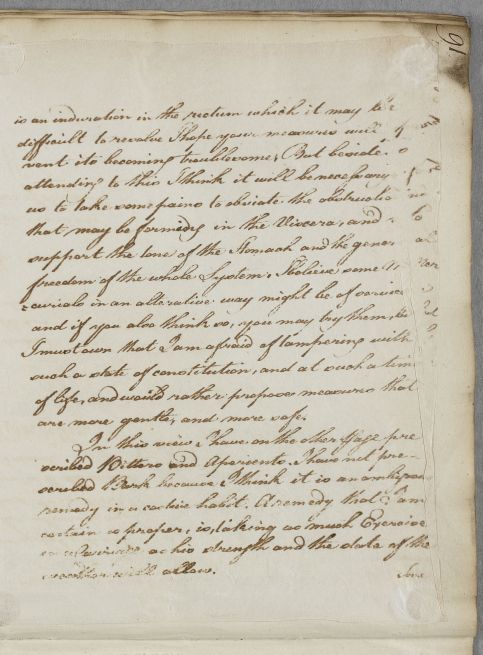 91
is an induration in the rectum which it may be
difficult to resolve I hope your measures will
vent its becoming troublesome; But beside
attending to this I think it will be necessary
us to take some pains to obviate the obstructio
that may be forming in the Viscera, and
support the tone of the Stomach and the gener
freedom of the whole System. I believe some M
-curials in an alterative way might be of service
and if you also think so, you may try them, but
I must own that I am afraid of tampering with
such a state of constitution, and at such a time
of life, and would rather propose measures that
are more gentle, and more safe.
In this view I have on the other page pre
scribed Bitters and Aperients. I have not pre-
scribed Bark because I think it is an
remedy in a costive habit. A remedy that I am
certain is proper, is, taking as much Exercise
as his strength and the state of the
weather will allow.